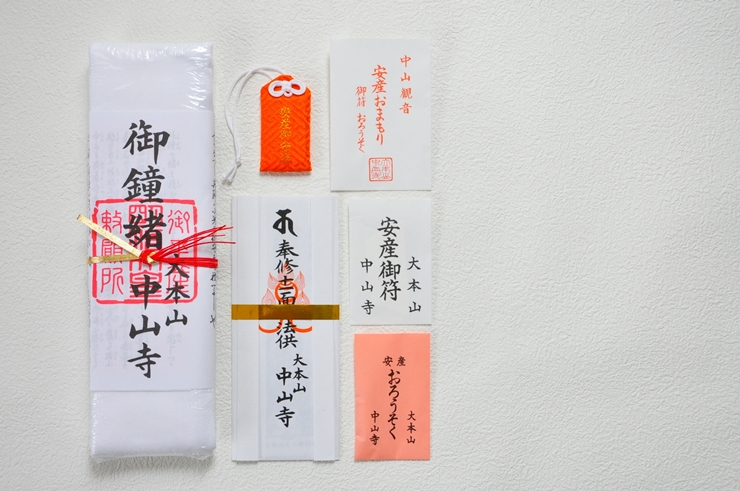 御鐘緒
大本山
中山寺
安産御守
中山観音
安産おまもり
御符 おろうそく
奉修十一面法供
大本山
中山寺
安産御符
大本山
中山寺
安産
おろうそく
大本山
中山寺